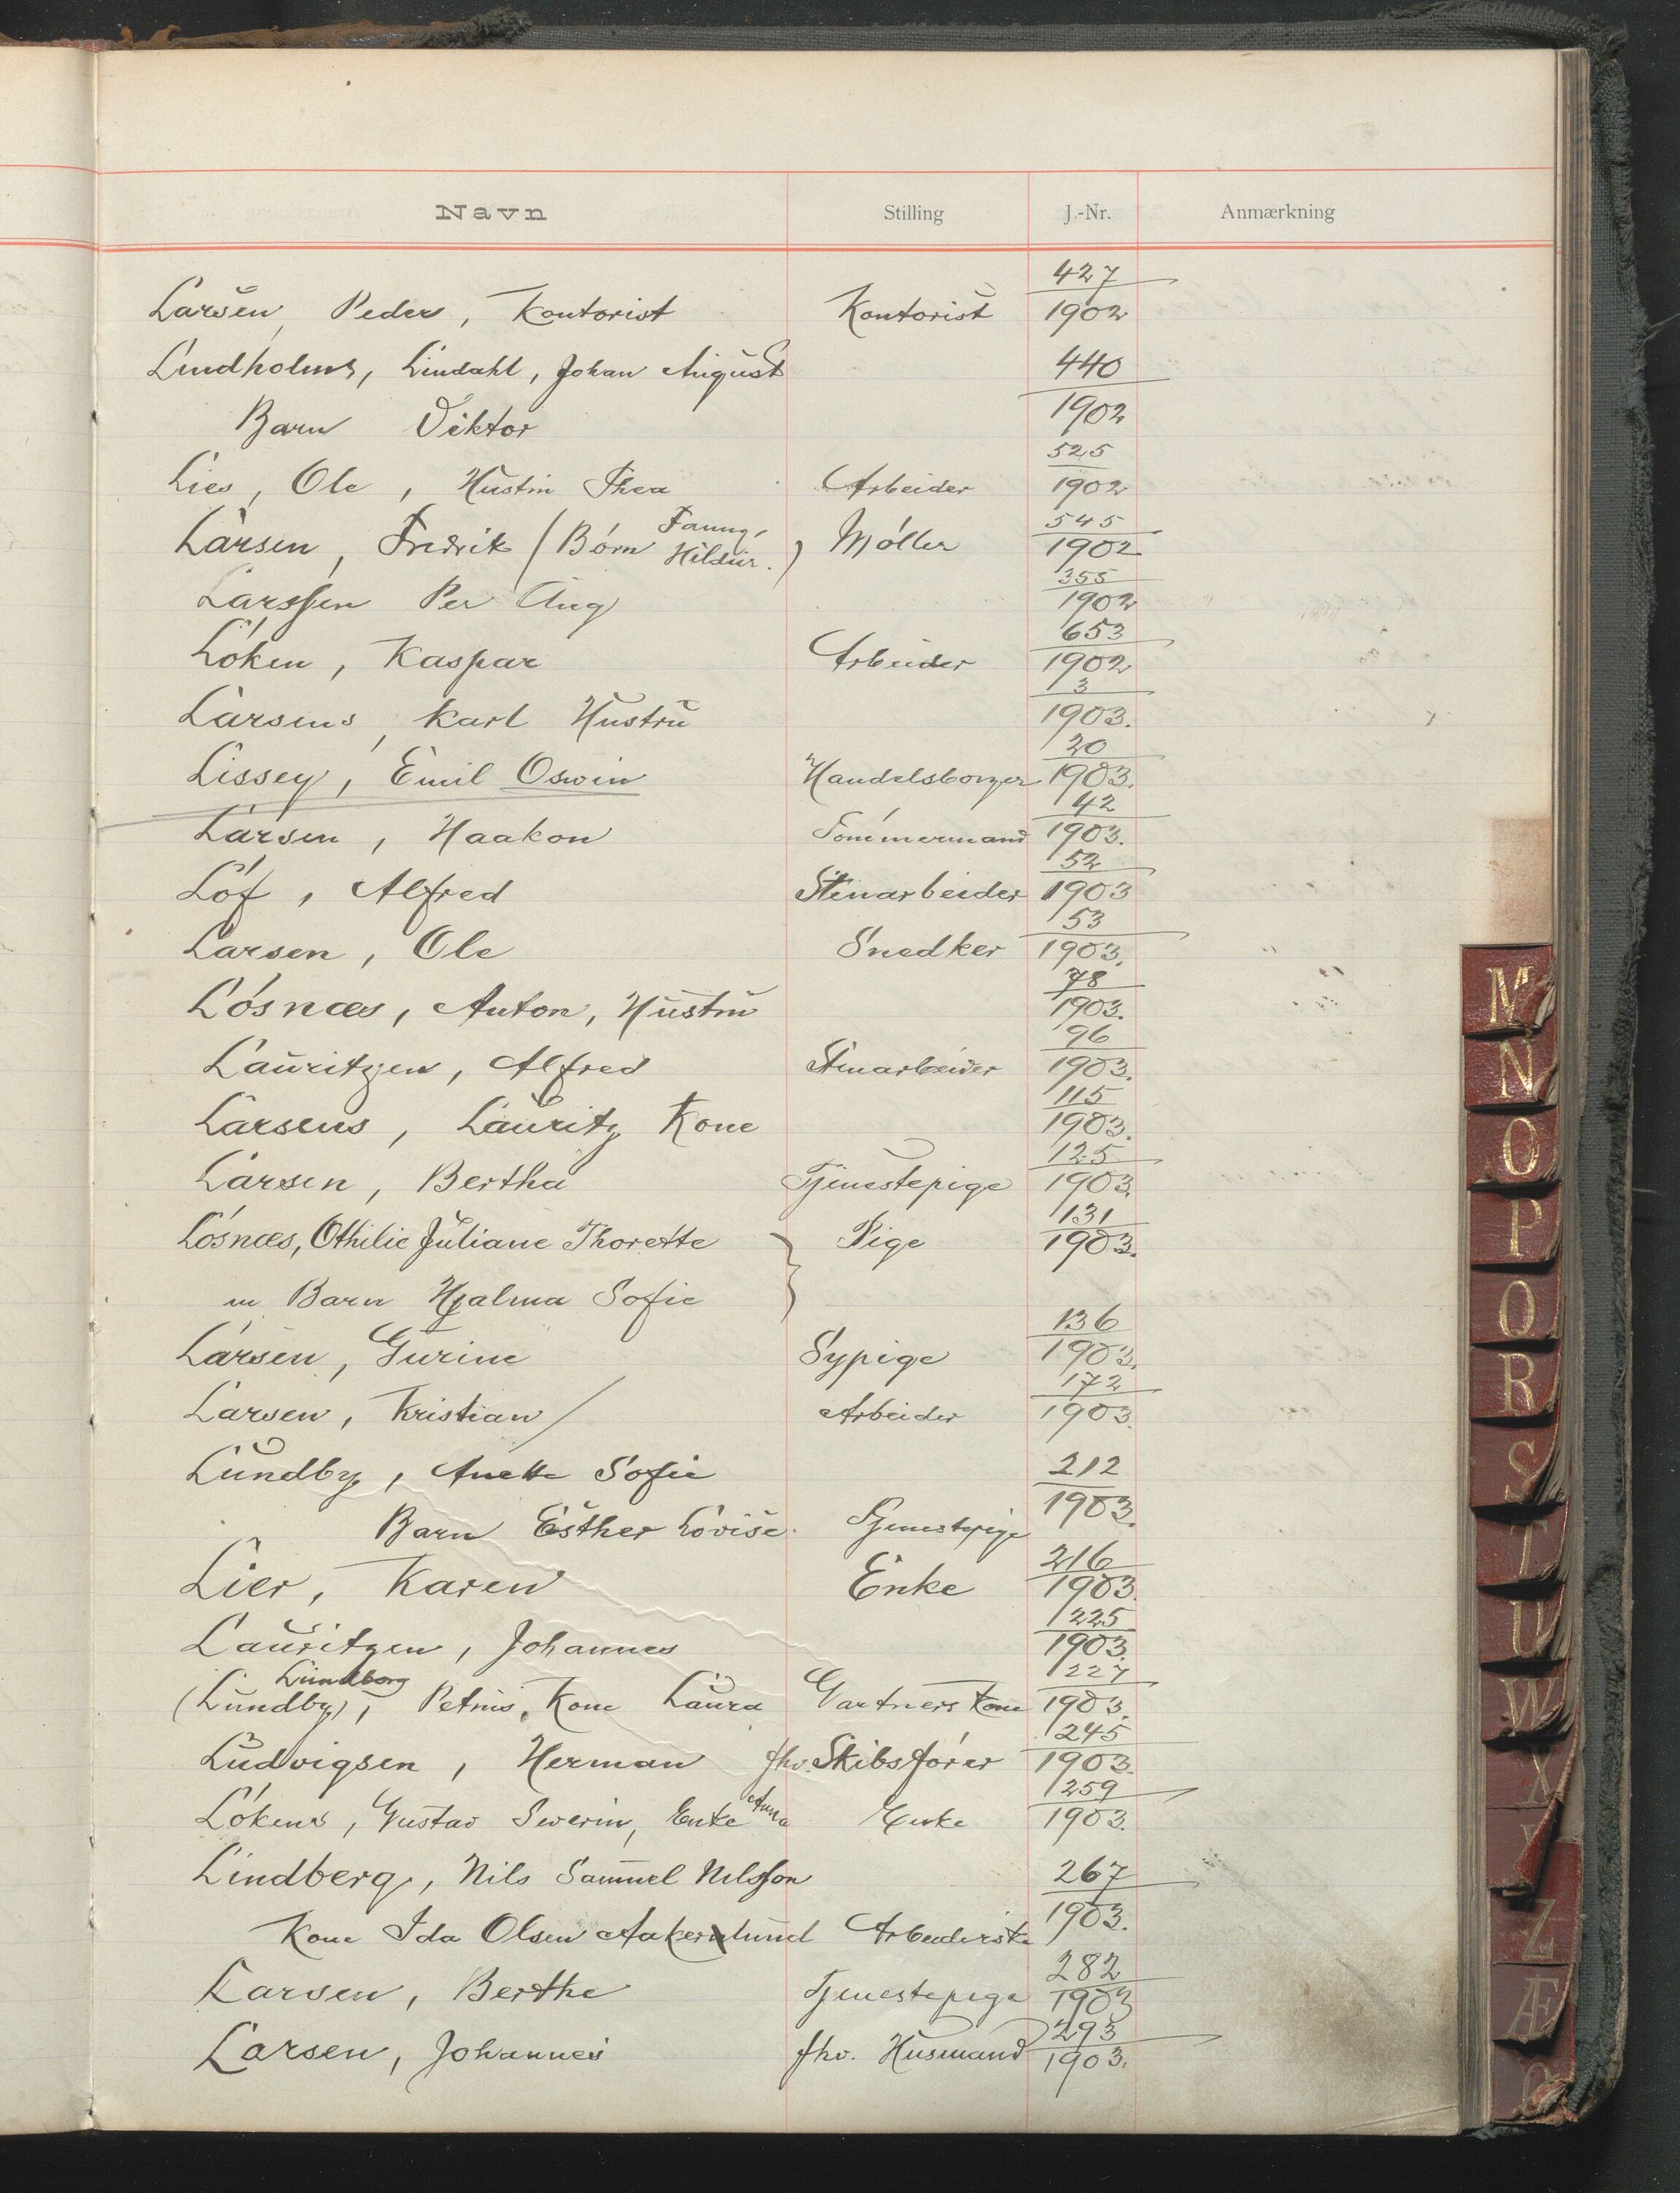 Navn Stilling J.-Nr. Anmærkning
Larsen, Peder, Kontorist Kontorist 427/1902
Lindholms, Lindahl, Johan August 440/1902
Barn Viktor
Lies, Ole, Hustru Thea Arbeider 525/1902
Larsen, Fredrik (Børn Fanny, Hildur.) Møller 545/1902
Larssen Per Aug 355/1902
Løken, Kaspar Arbeider 653/1902
Larsens, Karl Hustru 3/1903.
Lissey, Emil Oswin Handelsborger 20/1903.
Larsen, Haakon Tømmermand 42/1903.
Löf, Alfred Stenarbeider 52/1903
Larsen, Ole Snedker 53/1903.
Løsnæs, Anton, Hustru 78/1903.
Lauritzen, Alfred Stenarbeider 96/1903.
Larsens, Lauritz Kone 115/1903.
Larsen, Bertha Tjenestepige 125/1903.
Løsnæs, Othilie Juliane Thorette Pige 131/1903.
m Barn Hjalma Sofie
Larsen, Gurine Sypige 136/1903.
Larsen, Kristian Arbeider 172/1903.
Lundby, Anette Sofie 212/1903.
Barn Esther Lovise. Tjenestepige
Lier, Karen Enke 216/1903.
Lauritzen, Johannes 225/1903.
Lundborg
(Lundby), Petrus, Kone Laura Gartners Kone 227/1903.
Ludvigsen, Herman fhv. Skibsfører 245/1903.
Løkens, Gustav Severin, Enke Anna Enke 259/1903.
Lindberg, Nils Samuel Nilsson 267/1903.
Kone Ida Olsen Aakerlund Arbeiderske
Larsen, Berthe Tjenestepige 282/1903
Larsen, Johannes fhv. Husmand 293/1903.
M
N
O
P
Q
R
S
T
U
W
X
Z
Æ